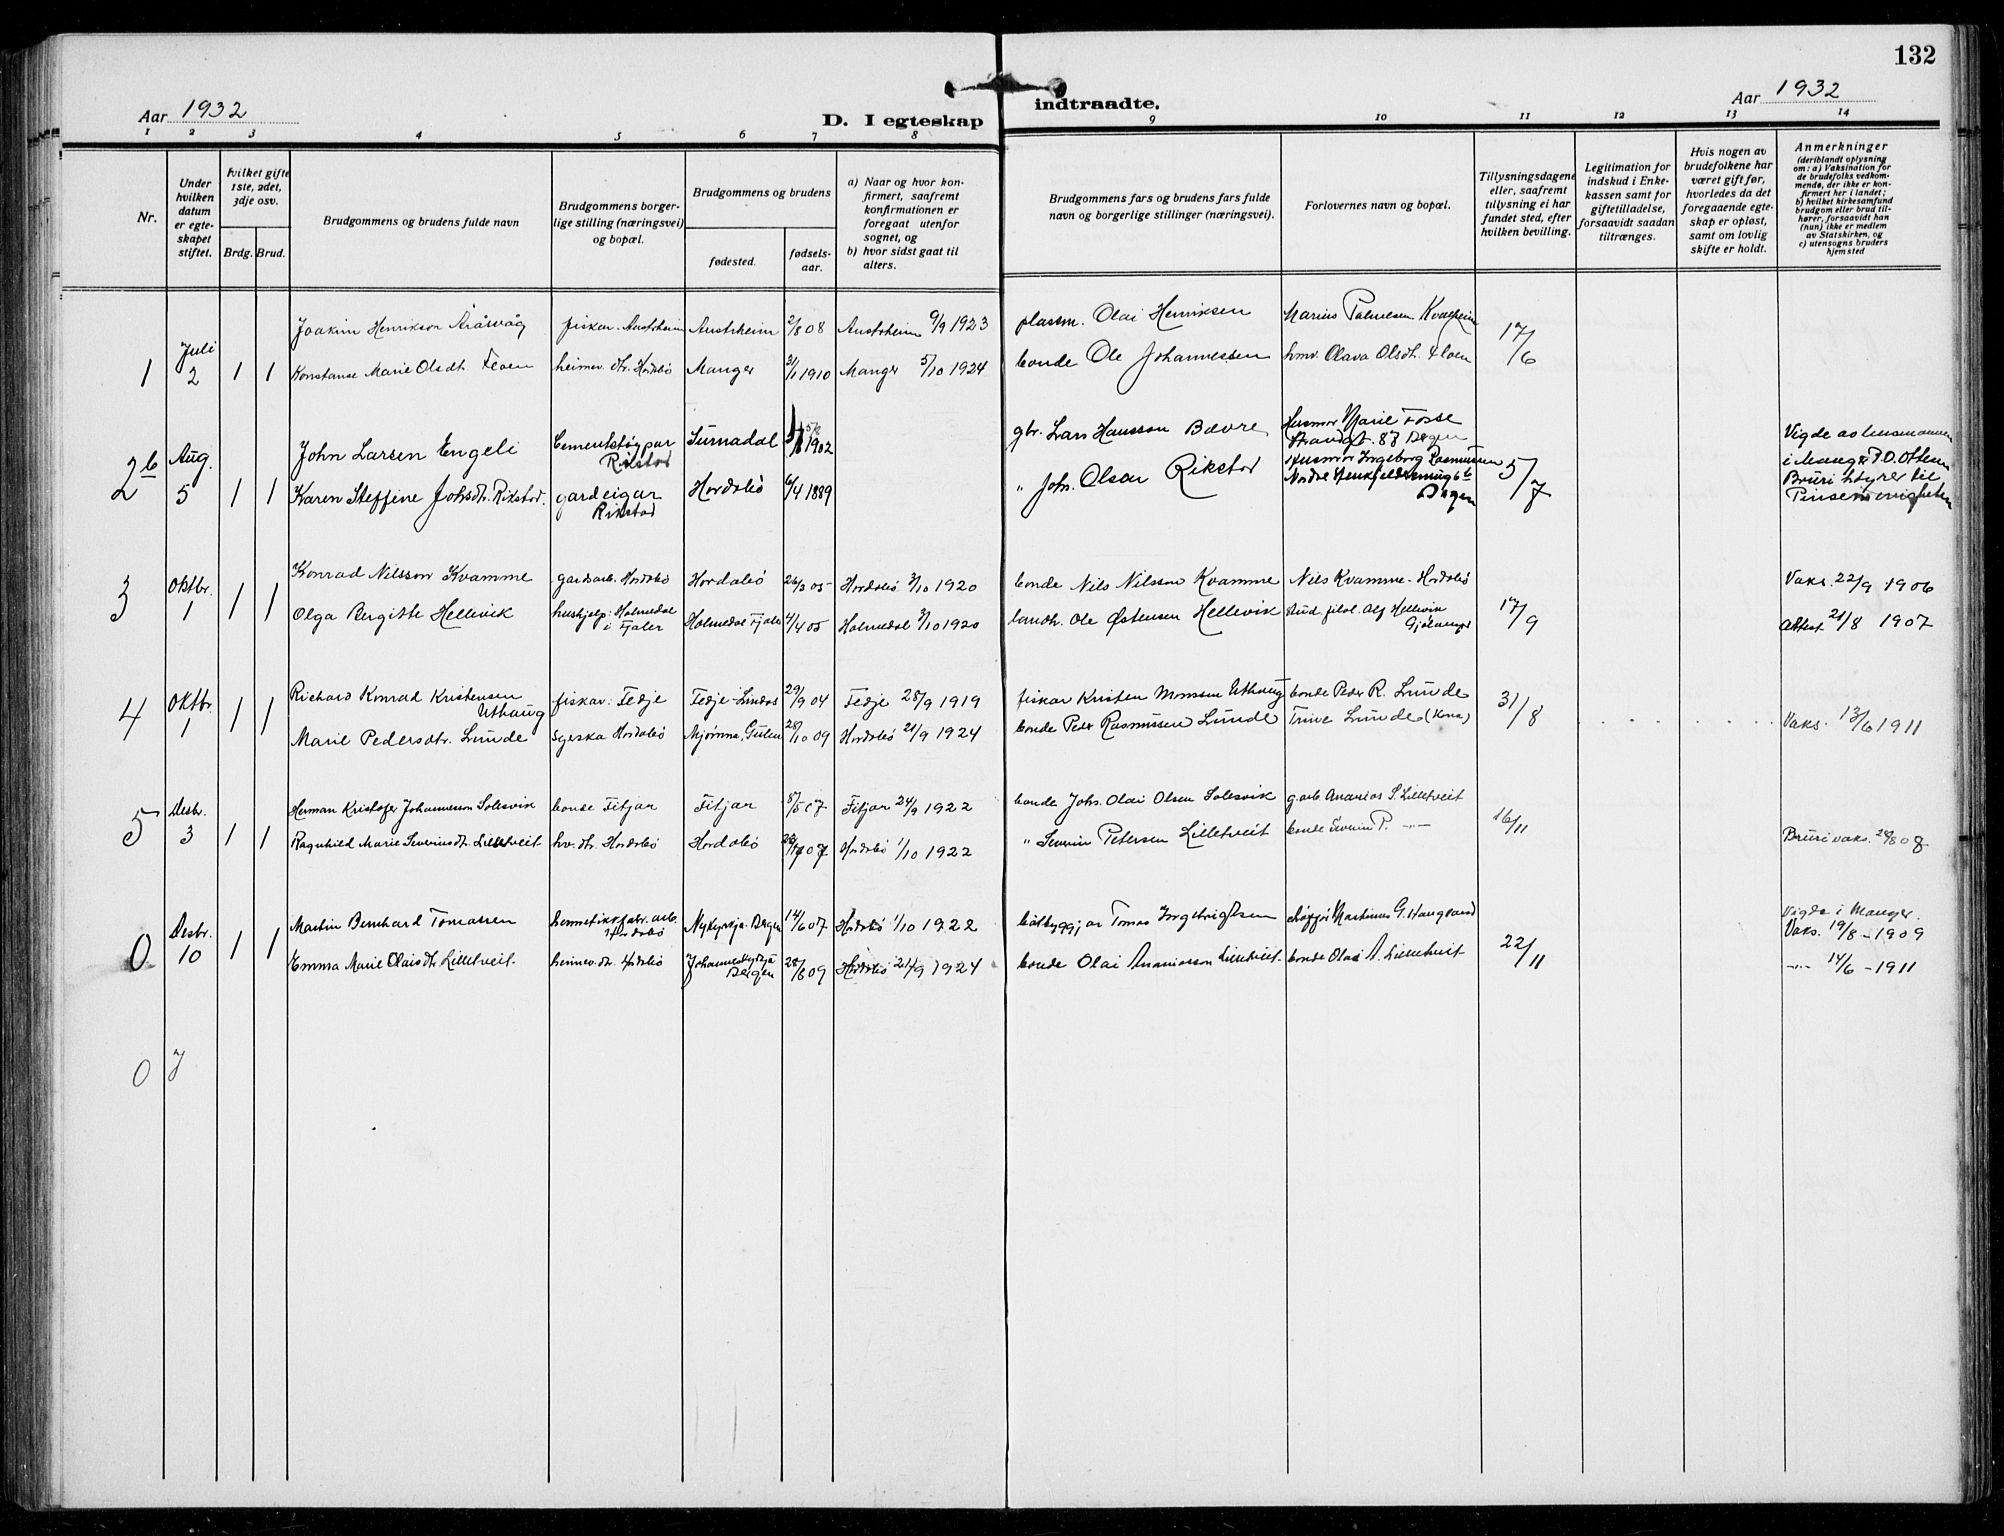 132
Aar 1932
D. I egteskap
indtraadte.
Aar 1932
1 2 3 4 5 6 7 8 9 10 11 12 13 14
Nr.
Under hvilken datum er egteskapet stiftet.
Hvilket gifte 1ste, 2det, 3dje osv.
Brdg. Brud.
Brudgommens og brudens fulde navn
Brudgommens borgerlige stilling (næringsvei) og bopæl.
Brudgommens og brudens
fødested.
fødselsaar.
a) Naar og hvor konfirmert, saafremt konfirmationen er foregaat utenfor sognet, og
b) hvor sidst gaat til alters.
Brudgommens fars og brudens fars fulde navn og borgerlige stillinger (næringsvei).
Forlovernes navn og bopæl.
Tillysningsdagene eller, saafremt tillysning ei har fundet sted, efter hvilken bevilling.
Legitimation for indskud i Enkekassen samt for giftetilladelse, forsaavidt saadan tiltrænges.
Hvis nogen av brudefolkene har været gift før, hvorledes da det foregaaende egteskap er opløst, samt om lovlig skifte er holdt.
Anmerkninger
(deriblandt oplysning om: a) Vaksination for de brudefolks vedkommende, der ikke er konfirmert her i landet; b) hvilket kirkesamfund brudgom eller brud tilhører, forsaavidt han (hun) ikke er medlem av Statskirken, og c) utensogns bruders hjemsted
Joakim Henrikson Åråsvåg fiskar. Austrheim Austrheim 2/8 08 Austrheim 9/9 1923 plassm. Olai Henriksen Marius
1 Juli 2 1 1 Konstanse Marie Olsdt. Floen heimev. dt. Hordabø Manger 3/1 1910 Manger 5/10 1924 bonde Ole Johannessen hmv. Olava Olsdt. Floen 17/6
John Larsen Engeli Cementstøypar Rikstad Surnadal 1902 gbr. Lars Hansson Bævre Husmor Marie Fosse Strandgt. 87 Bergen
2b Aug. 5 1 1 Karen Steffine Johsdt. Rikstad. gardeigar Rikstad Hordabø 6/4 1889 " Joh. Olsen Rikstad Husmor Ingeborg Rasmussen Nordre Bergen 5/7
Vigde av lensmannen i Manger O. Ottesen Bruri høyrer til Pinsemenigheten
Konrad Nilsson Kvamme gardsarb. Hordabø Hordabø 26/3 05 Hordabø 3/10 1920 bonde Nils Nilsson Kvamme Nils Kvamme - Hordabø Vaks. 22/9 1906
3 Oktbr. 1 1 1 Olga Bergitte Hellevik hushjelp: Holmedal i Fjaler Holmedal Fjaler 4/4 05 Holmedal 3/10 1920 landh. Ole Østensen Hellevik stud. filol. Alf Hellevik 17/9 Attest 21/8 1907
Richard Konrad Kristensen Uthaug fiskar: Fedje Fedje - Lindås 29/9 04 Fedje 28/9 1919 fiskar Kristen Monssen Uthaug bonde Peder R. Lunde
4 Oktbr. 1 1 1 Marie Pedersdtr. Lunde syerska Hordabø Mjømna, Gulen 28/10 09 Hordabø 21/9 1924 bonde Peder Rasmussen Lunde Trine Lunde (kona) 31/8 Vaks. 13/6 1911
Herman Kristofer Johannesson Solesvik bonde Fitjar Fitjar 8/5 07 Fitjar 24/9 1922 bonde Johs. Olai Olsen Solesvik g.arb. Ananias S. Lilletveit
5 Desbr. 3 1 1 Ragnhild Marie Severinsdtr. Lilletveit hv. dt. Hordabø Hordabø 07 Hordabø 1/10 1922 " Severin Petersen Lilletveit bonde Severin P. -"- 16/11 Bruri vaks. 08
Martin Bernhard Tomassen hermetikkfabr. arb. Hordabø Nykyrkja Bergen 14/6 07 Hordabø 1/10 1922 båtbyggjar Tomas Ingebrigtsen Martinus G. Haugland Vigde i Manger. Vaks. 19/8 - 1909
0 Desbr. 10 1 1 Emma Marie Olaisdtr Lilletveit. heimev. dt. Hordabø Johanneskyrkja Bergen 28/8 09 Hordabø 21/9 1924 bonde Olai Ananiassen Lilletveit. bonde Olai A. Lilletveit 22/11 -"- 14/6 - 1911
0 7